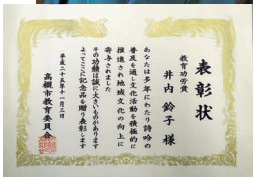 表彰状
教育功労賞
井内 鈴子 様
あなたは多年にわたり詩吟の
普及を通し文化活動を積極的に
推進され地域文化の向上に
寄与されました
その功績は誠に大きいものがあります
よってここに記念品を贈り表彰します
平成二十五年十一月三日
高槻市教育委員会